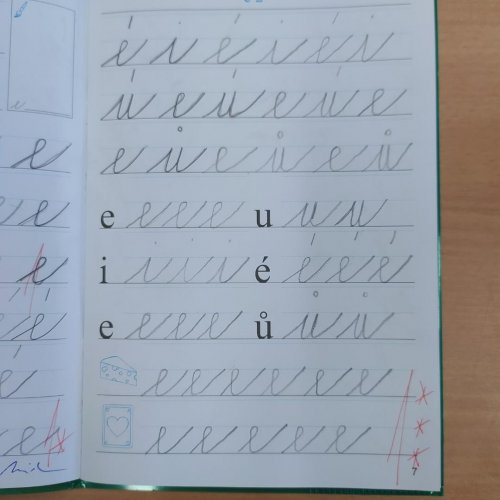 é i é i é i
ú e ú e ú e
e ů e ů e ů
e e e e u u u
i i i i é é é é
e e e e ů ů ů
e e e e e e
e e e e e
7